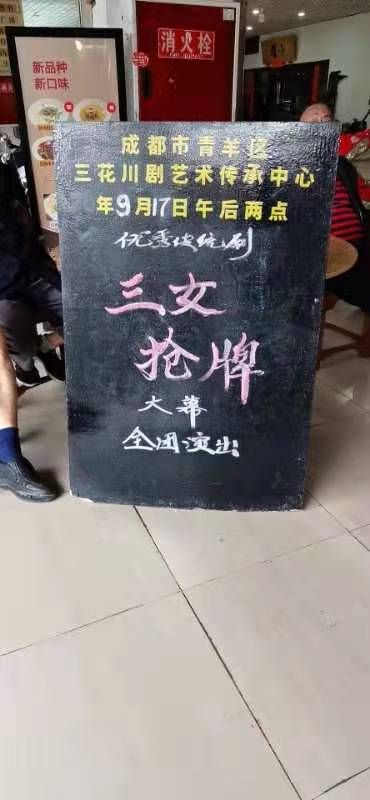 新品种
新口味
消火栓
成都市青羊区
三花川剧艺术传承中心
年9月17日午后两点
优秀传统剧
三女
抢牌
大幕
全团演出